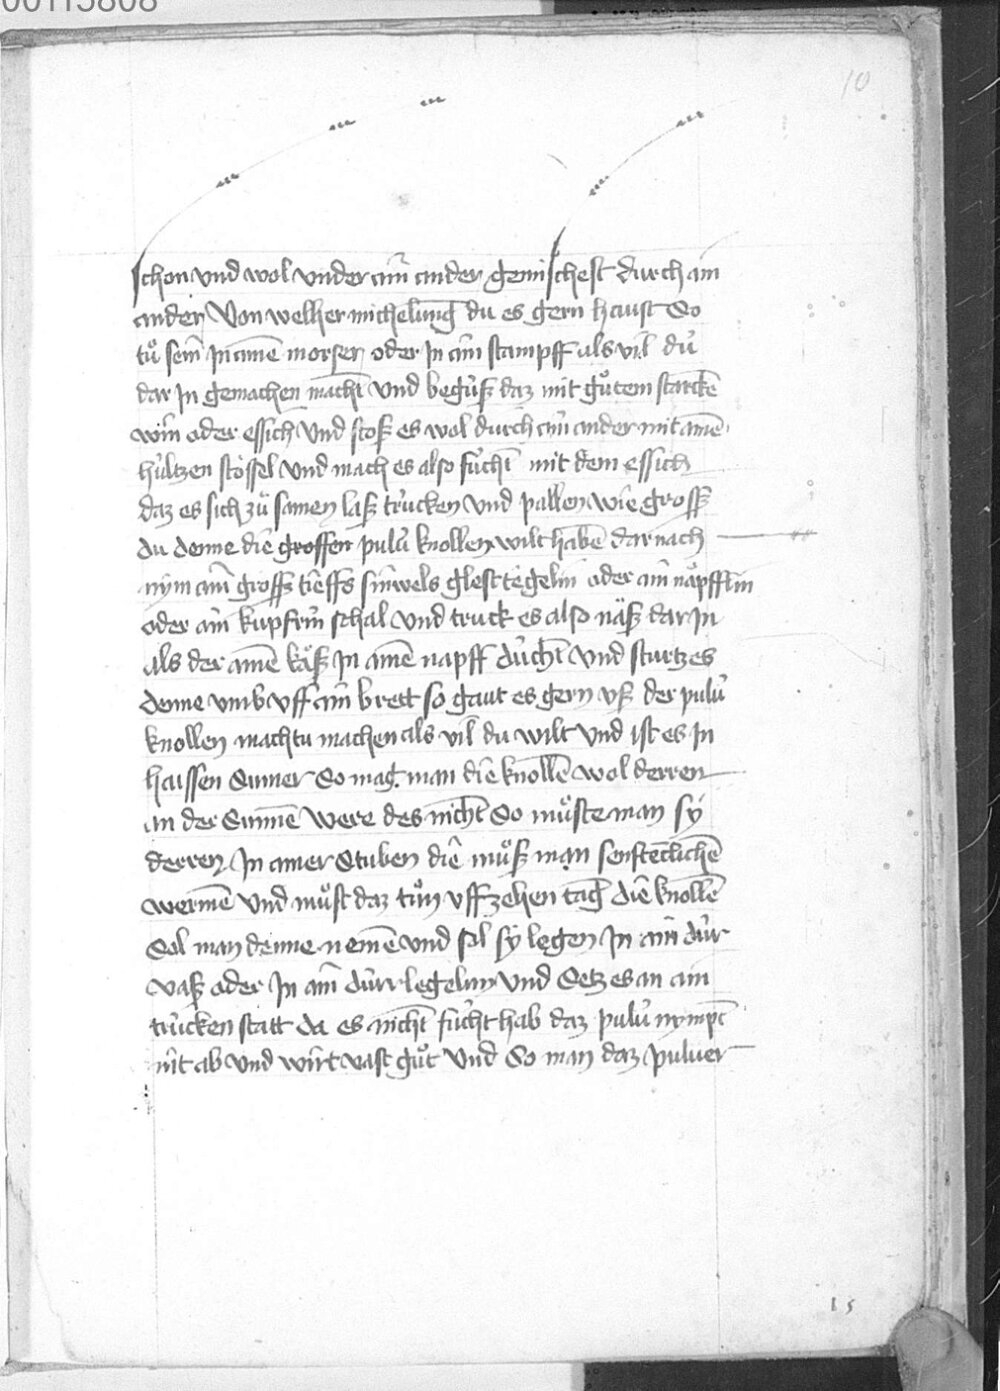 00115808
10
schon vnd wol vnder ain ander gemischest durch ain
ander Von welher michelung du es gern haust So
tů sein In aine morser oder In ain stampff als vil du
dar In gemachen macht vnd begúß daz mit gůtem starcke
win oder essich Vnd stoß es wol durch ain ander mit aine
húltzen stössel Vnd mach es also fúcht mit dem essich
daz es sich zů samen laß trucken vnd pallen wie groß
du denne die grossen pulu knollen wilt habe darnach
nym ain groß tieffs sinwels glest tegelin oder ain näpfflin
oder ain kupfrin schal Vnd truck es also näß dar In
als der aine käß In aine napff dúcht Vnd sturtz es
denne vmb vff ain brett so gaut es gern vß der pulu
knollen machtu machen als vil du wilt Vnd ist es In
haissen Sumer So mag man die knolle wol derren
an der Sunne Were des nicht So můste man sy
derren In ainer Stuben die můß man senfteclichē
wermē Vnd můst daz tůn vff zehen tag die knollē
Sol man denne nemē vnd sol sy legen In ain dúr
vaß oder In ain dúrr legelin Vnd Setz es an ain
trúcken statt da es nicht fúcht hab daz pulu nympt
nit ab Vnd wirt vast gůt Vnd So man daz puluer
15